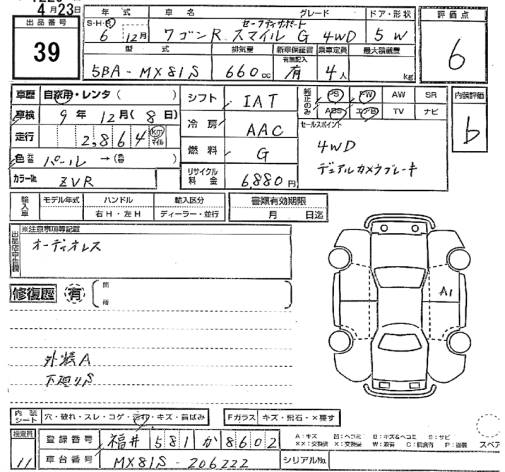 4月23日
出品番号 年式 車名 グレード ドア・形状 評価点
39
S・H・R 6年 12月 ワゴンR スマイル セーフティサポート G 4WD 5 W
6
型式 排気量 新車保証書 乗車定員 最大積載量
有無記入
5BA-MX81S 660cc 有 4人 kg
車歴 自家用・レンタ( )
シフト IAT
純正のみ PS PW AW SR
ABS エアB TV ナビ
内装評価
b
車検 9年 12月(8日)
冷房 AAC
セールスポイント
4WD
デュアルカメラブレーキ
走行 2,864 km マイル
燃料 G
色 パール →(色 )
カラーNo. ZVR
リサイクル料金 6,880円
輸入車 モデル年式 ハンドル 輸入区分 書類有効期限
右H・左H ディーラー・並行 月 日迄
※注意事項等記載
オーディオレス
修復歴 有
A1
外装A
下廻りS
内装シート 穴・破れ・スレ・コゲ・汚れ・キズ・肩ばみ
Fガラス キズ・飛石・X要す
検査員 11
登録番号 福井 581 か 8602
車台番号 MX81S-206222
シリアルNo.
A:キズ
スペア